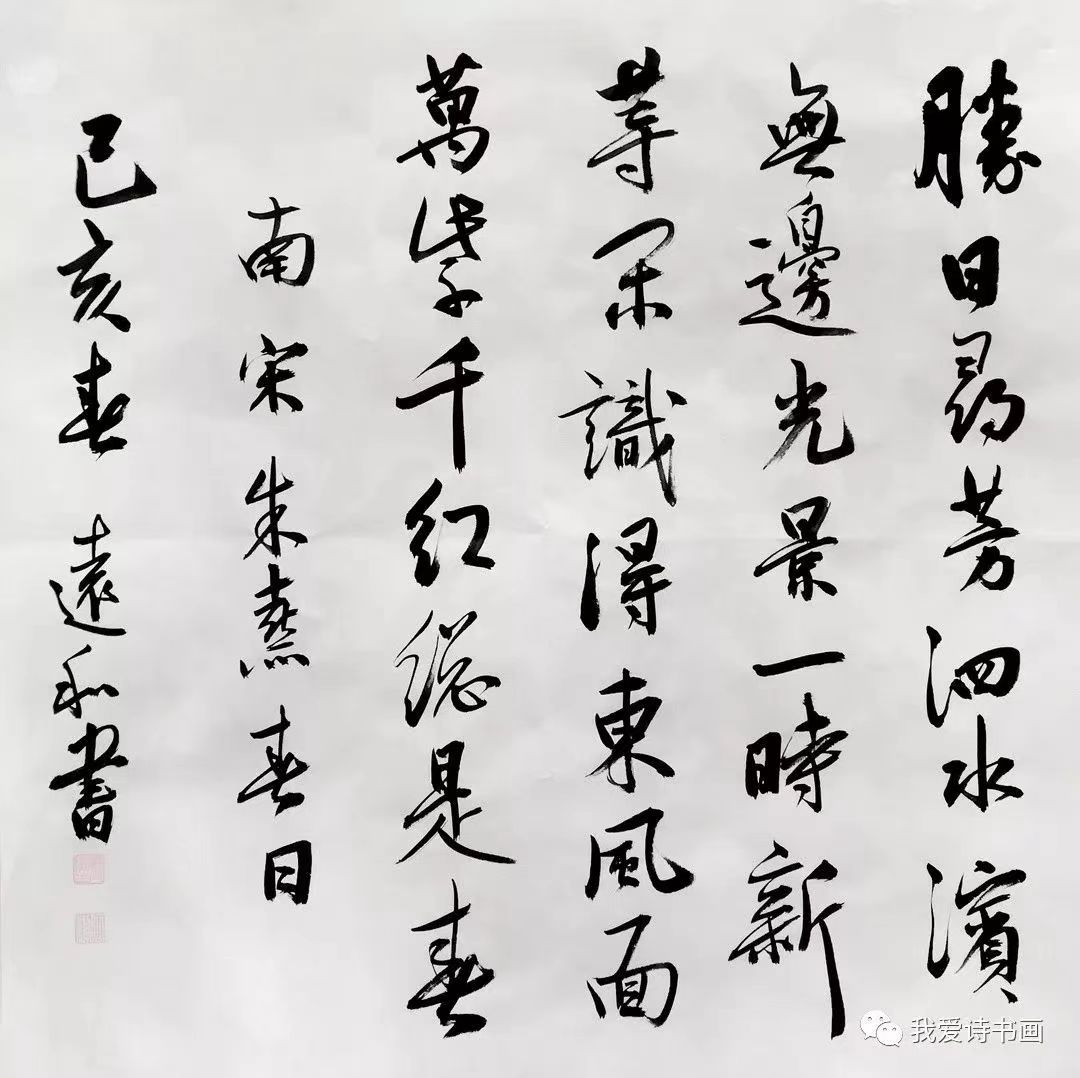 勝日尋芳泗水濱
無邊光景一時新
等閑識得東風面
萬紫千紅總是春
南宋朱熹春日
己亥春 遠和書
我爱诗书画